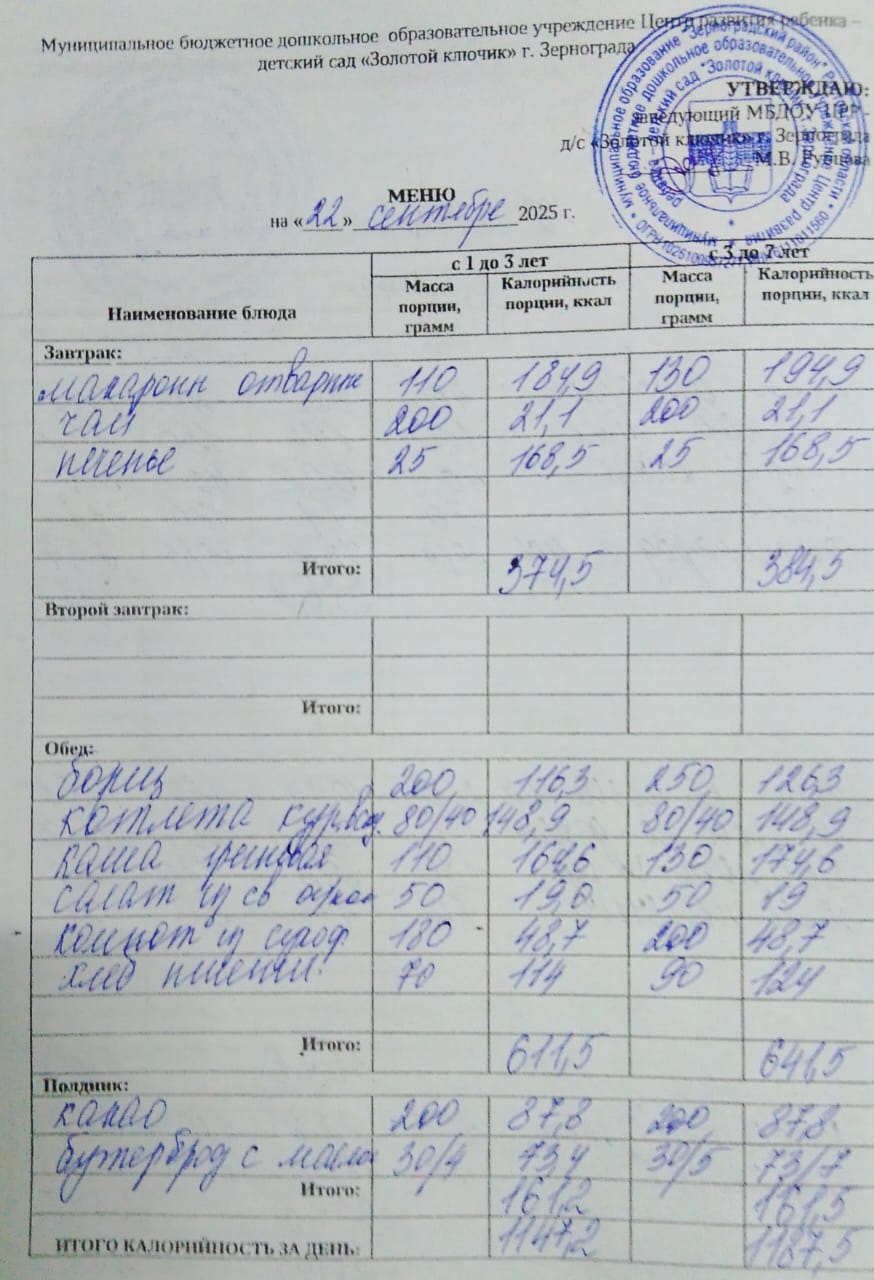 Муниципальное бюджетное дошкольное образовательное учреждение Центр развития ребенка –
детский сад «Золотой ключик» г. Зернограда
УТВЕРЖДАЮ:
заведующий МБДОУ ЦРР -
д/с «Золотой ключик» г. Зернограда
М.В. Рубцова
МЕНЮ
на «22» сентебре 2025 г.
Наименование блюда с 1 до 3 лет с 3 до 7 лет
Масса порции, грамм Калорийность порции, ккал Масса порции, грамм Калорийность порции, ккал
Завтрак:
макарони отварние 110 184,9 130 194,9
чай 200 21,1 200 21,1
печенье 25 168,5 25 168,5
Итого: 374,5 384,5
Второй завтрак:
Итого:
Обед:
борщ 200 116,3 250 126,3
котлета кур. 80/40 148,9 80/40 148,9
каша гречневая 110 164,6 130 174,6
салат из св 50 19,0 50 19
компот из сухоф. 180 48,7 200 48,7
хлеб пшенич. 70 114 90 124
Итого: 611,5 641,5
Полдник:
какао 200 87,8 200 87,8
бутерброд с масло 30/4 73,4 30/5 73/7
Итого: 161,2 161,5
ИТОГО КАЛОРИЙНОСТЬ ЗА ДЕНЬ: 1147,2 1187,5